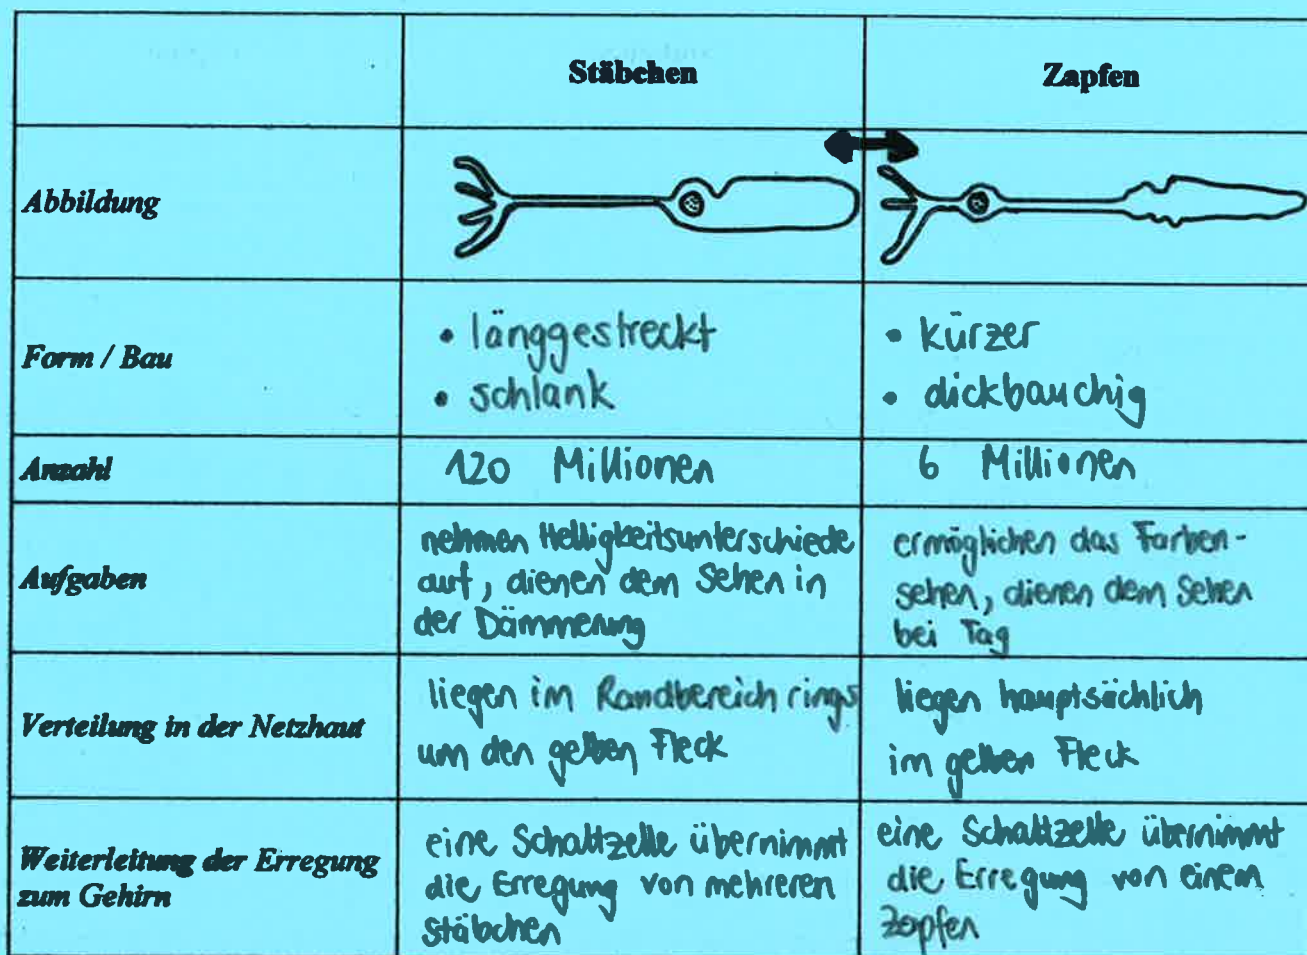 Stäbchen
Zapfen
Abbildung
Form / Bau
• länggestreckt
• schlank
• kürzer
• dickbauchig
Anzahl
120 Millionen
6 Millionen
Aufgaben
nehmen Helligkeitsunterschiede
auf, dienen dem Sehen in
der Dämmerung
ermöglichen das Farben-
sehen, dienen dem Sehen
bei Tag
Verteilung in der Netzhaut
liegen im Randbereich rings
um den gelben Fleck
liegen hauptsächlich
im gelben Fleck
Weiterleitung der Erregung
zum Gehirn
eine Schaltzelle übernimmt
die Erregung von mehreren
Stäbchen
eine Schaltzelle übernimmt
die Erregung von einem
Zapfen